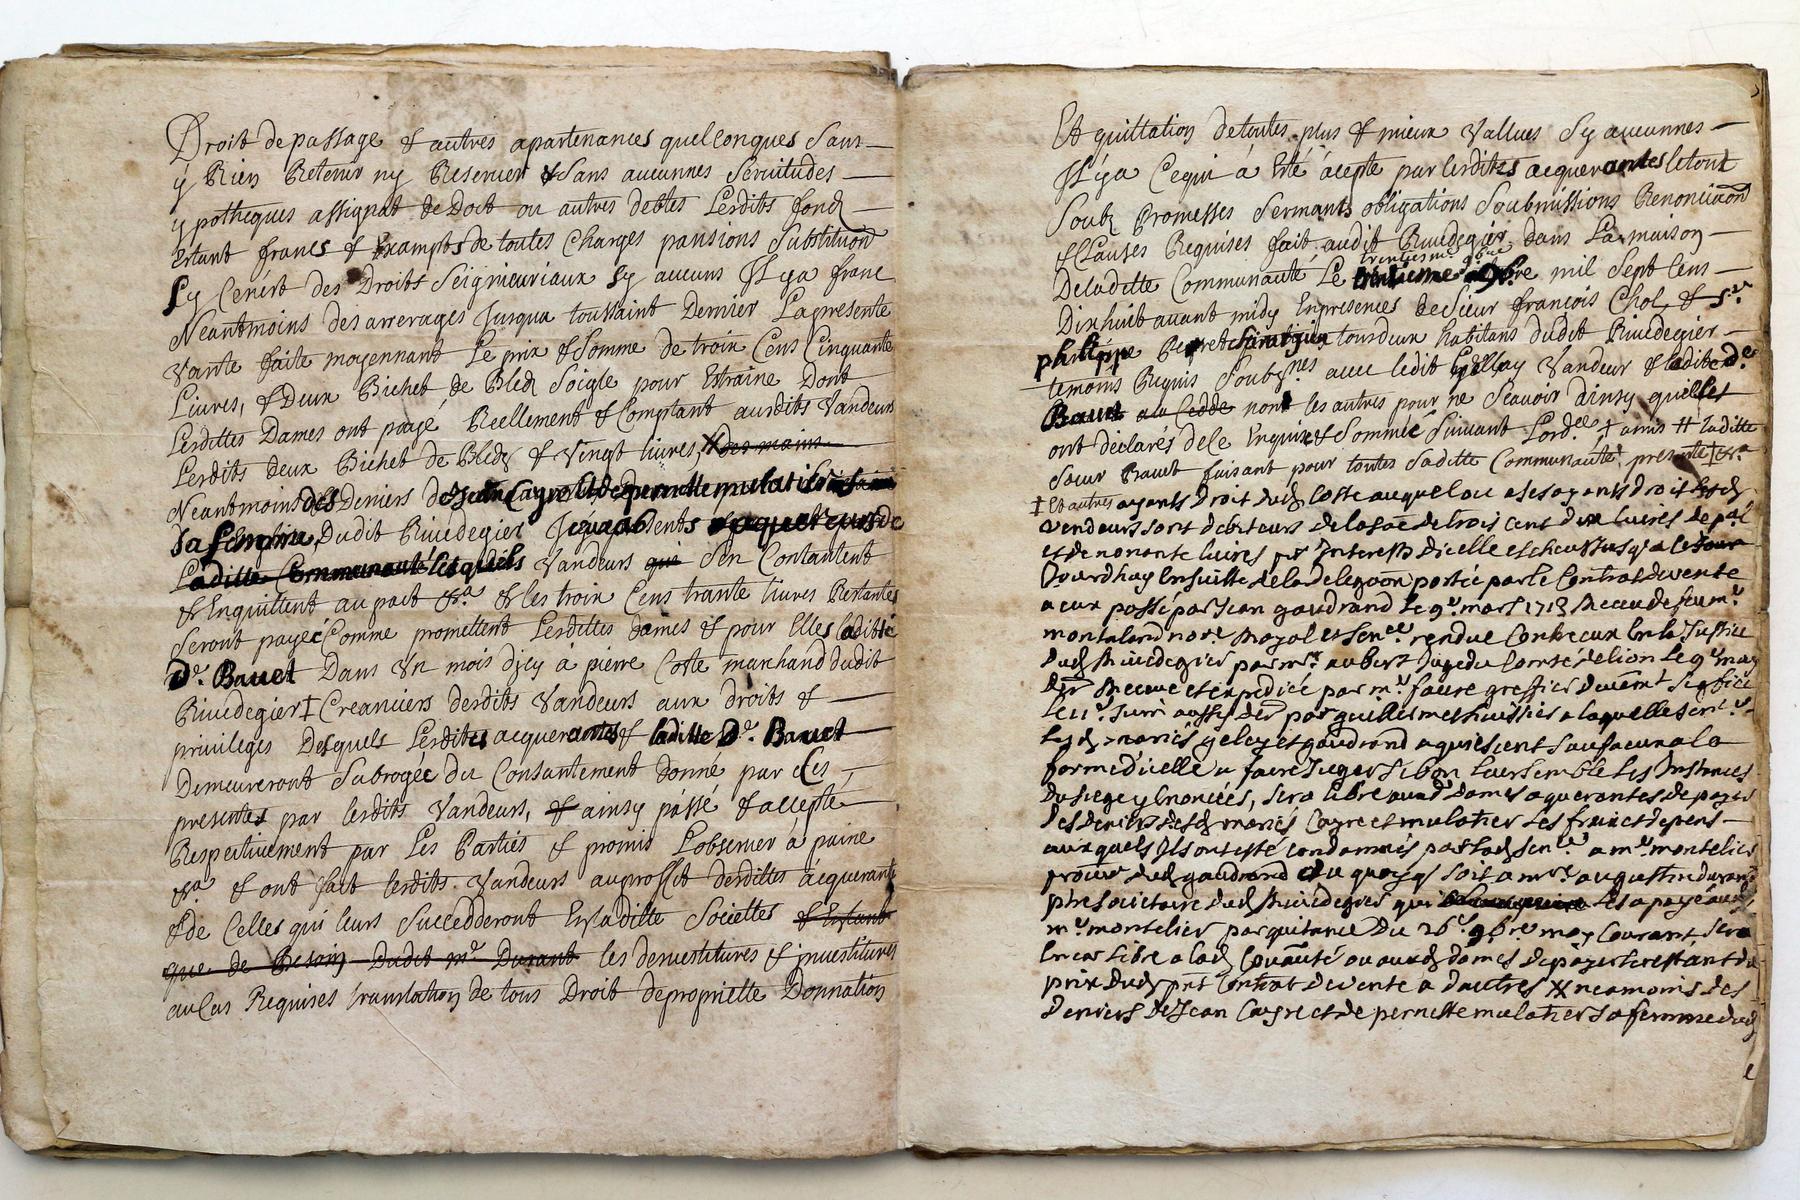 Droit de passage & autres apartenances quelconques Sans
y Rien Retenir ny Reserver & Sans aucunnes Servitudes
ypotheques assignat de Doit ou autres debtes Lesdits fond
estant francs & Exampts de toutes Charges pansions Substituon
Sy Cenest des Droits Seigneuriaux Sy aucuns Il ya franc
Neantmoins des arrerages Jusqua toussaint Dernier La presente
Vante faite moyennant Le prix & Somme de trois Cens Cinquante
Livres, & Deux Bichet de Bled Soigle pour Estraine Dont
Lesdittes Dames ont payé Reellement & Comptant ausdits Vandeurs
Lesdits deux Bichet de Bled & Vingt livres, X des mains
Neantmoins des Deniers de Jean Cayre & de pernette mulatier
Sa femme, Dudit Rivedegier
Laditte Communauté lesquels Vandeurs qui Sen Contantent
& Enquittent au pact &ra & les trois Cens trante livres Restantes
Seront payée Comme promettent Lesdittes dames & pour Elles laditte
De. Bauet Dans Vn mois Djcy à pierre Coste marchand dudit
Rivedegier ‡ Creanciers desdits Vandeurs aux droits &
privileges Desquels Lesdites acquerantes & laditte De. Bauet
Demeureront Subrogée du Consantement donné par Ces
presentes par lesdits Vandeurs, & ainsy passé & accepté
Respectivement par Les Parties & promis Lobserver à paine
&ra & ont fait lesdits Vandeurs au proffit desdittes acquerant
& de Celles qui leurs Succedderont En laditte Societtes & Entant
que de Besoin Dudit mr. Durant les devestitures & jnvestitures
au Cas Requises translation de tous Droit de proprietté Donnation
Et quittation de toutes plus & mieux Vallues Sy aucunnes
Il ya Ce qui à Esté acepté par lesdites acquerantes le tout
Soubz Promesses Sermants obligations Soubmissions Renonciaon
& Clauses Requises fait audit Rivedegier dans La maison
trentiesme 9bre
De laditte Communauté Le trentieme 9bre mil Sept Cens
Dix huit avant midy En presences de Sieur françois Chol, & Sr.
philippe chirurgien tous deux habitans dudit Rivedegier
temoins Requis Soubzsnes avec ledit Vandeur & ladite De
Bauet a la Cedde non les autres pour ne Scavoir Ainsy quelles
ont déclarés de Ce Enquis & Sommé Suivant Lordce ‡ amis # laditte
Sœur Bauet faisant pour toutes Saditte Communauté presente ‡ &ra
‡ Et autres ayants Droit dud Coste auquel ou a Ses ayants droit lesd
vendeurs sont debiteurs de la so[m]e de trois cent dix livres de pal
et de nonante livres pr Interests dicelle escheus Jusqua Ce Jour
dhuy En Suitte de la delegaon portée par le Contrat de vente
a eux passé par Jean gaudrand Le 9e. mars 1713 Receu deffeu mr.
montaland nore Royal et Sence. rendue Contre eux En la Justice
dud Rivedegier par mr. aubert Juge du Comté de lion Le 9e may
der Receue et expediée par mr. faure greffier
Le 11e. Juin aussy der par guilliermet huissier a laquelle Sence.
Lesd mariés et gaudrand aquiescent Sauf aeux a la
forme dicelle a faire Juger Si bon Leur Semble Les Instances
du Siege y Enoncées, Sera libre auxd Dames aquerantes de payer
des deniers desd mariés Cayre et mulatier Les frais et depens
auxquels Ils ont esté condamnés par lad Sence a mr. montelier
procur dud gaudrand ou quoy q Soit a mre. augustin durand
pbre Societaire dud Rivedegier qui Les a payé aud
mr. montelier par quitance Du 26e. 9bre moy Courant, Sera
En cas libre a lad Co[mmun]auté ou auxd dames de payer le restant du
prix dud pnt Contrat de vente a dautres X neamoins des
deniers de Jean Cayre et de pernette mulatier Sa femme dud